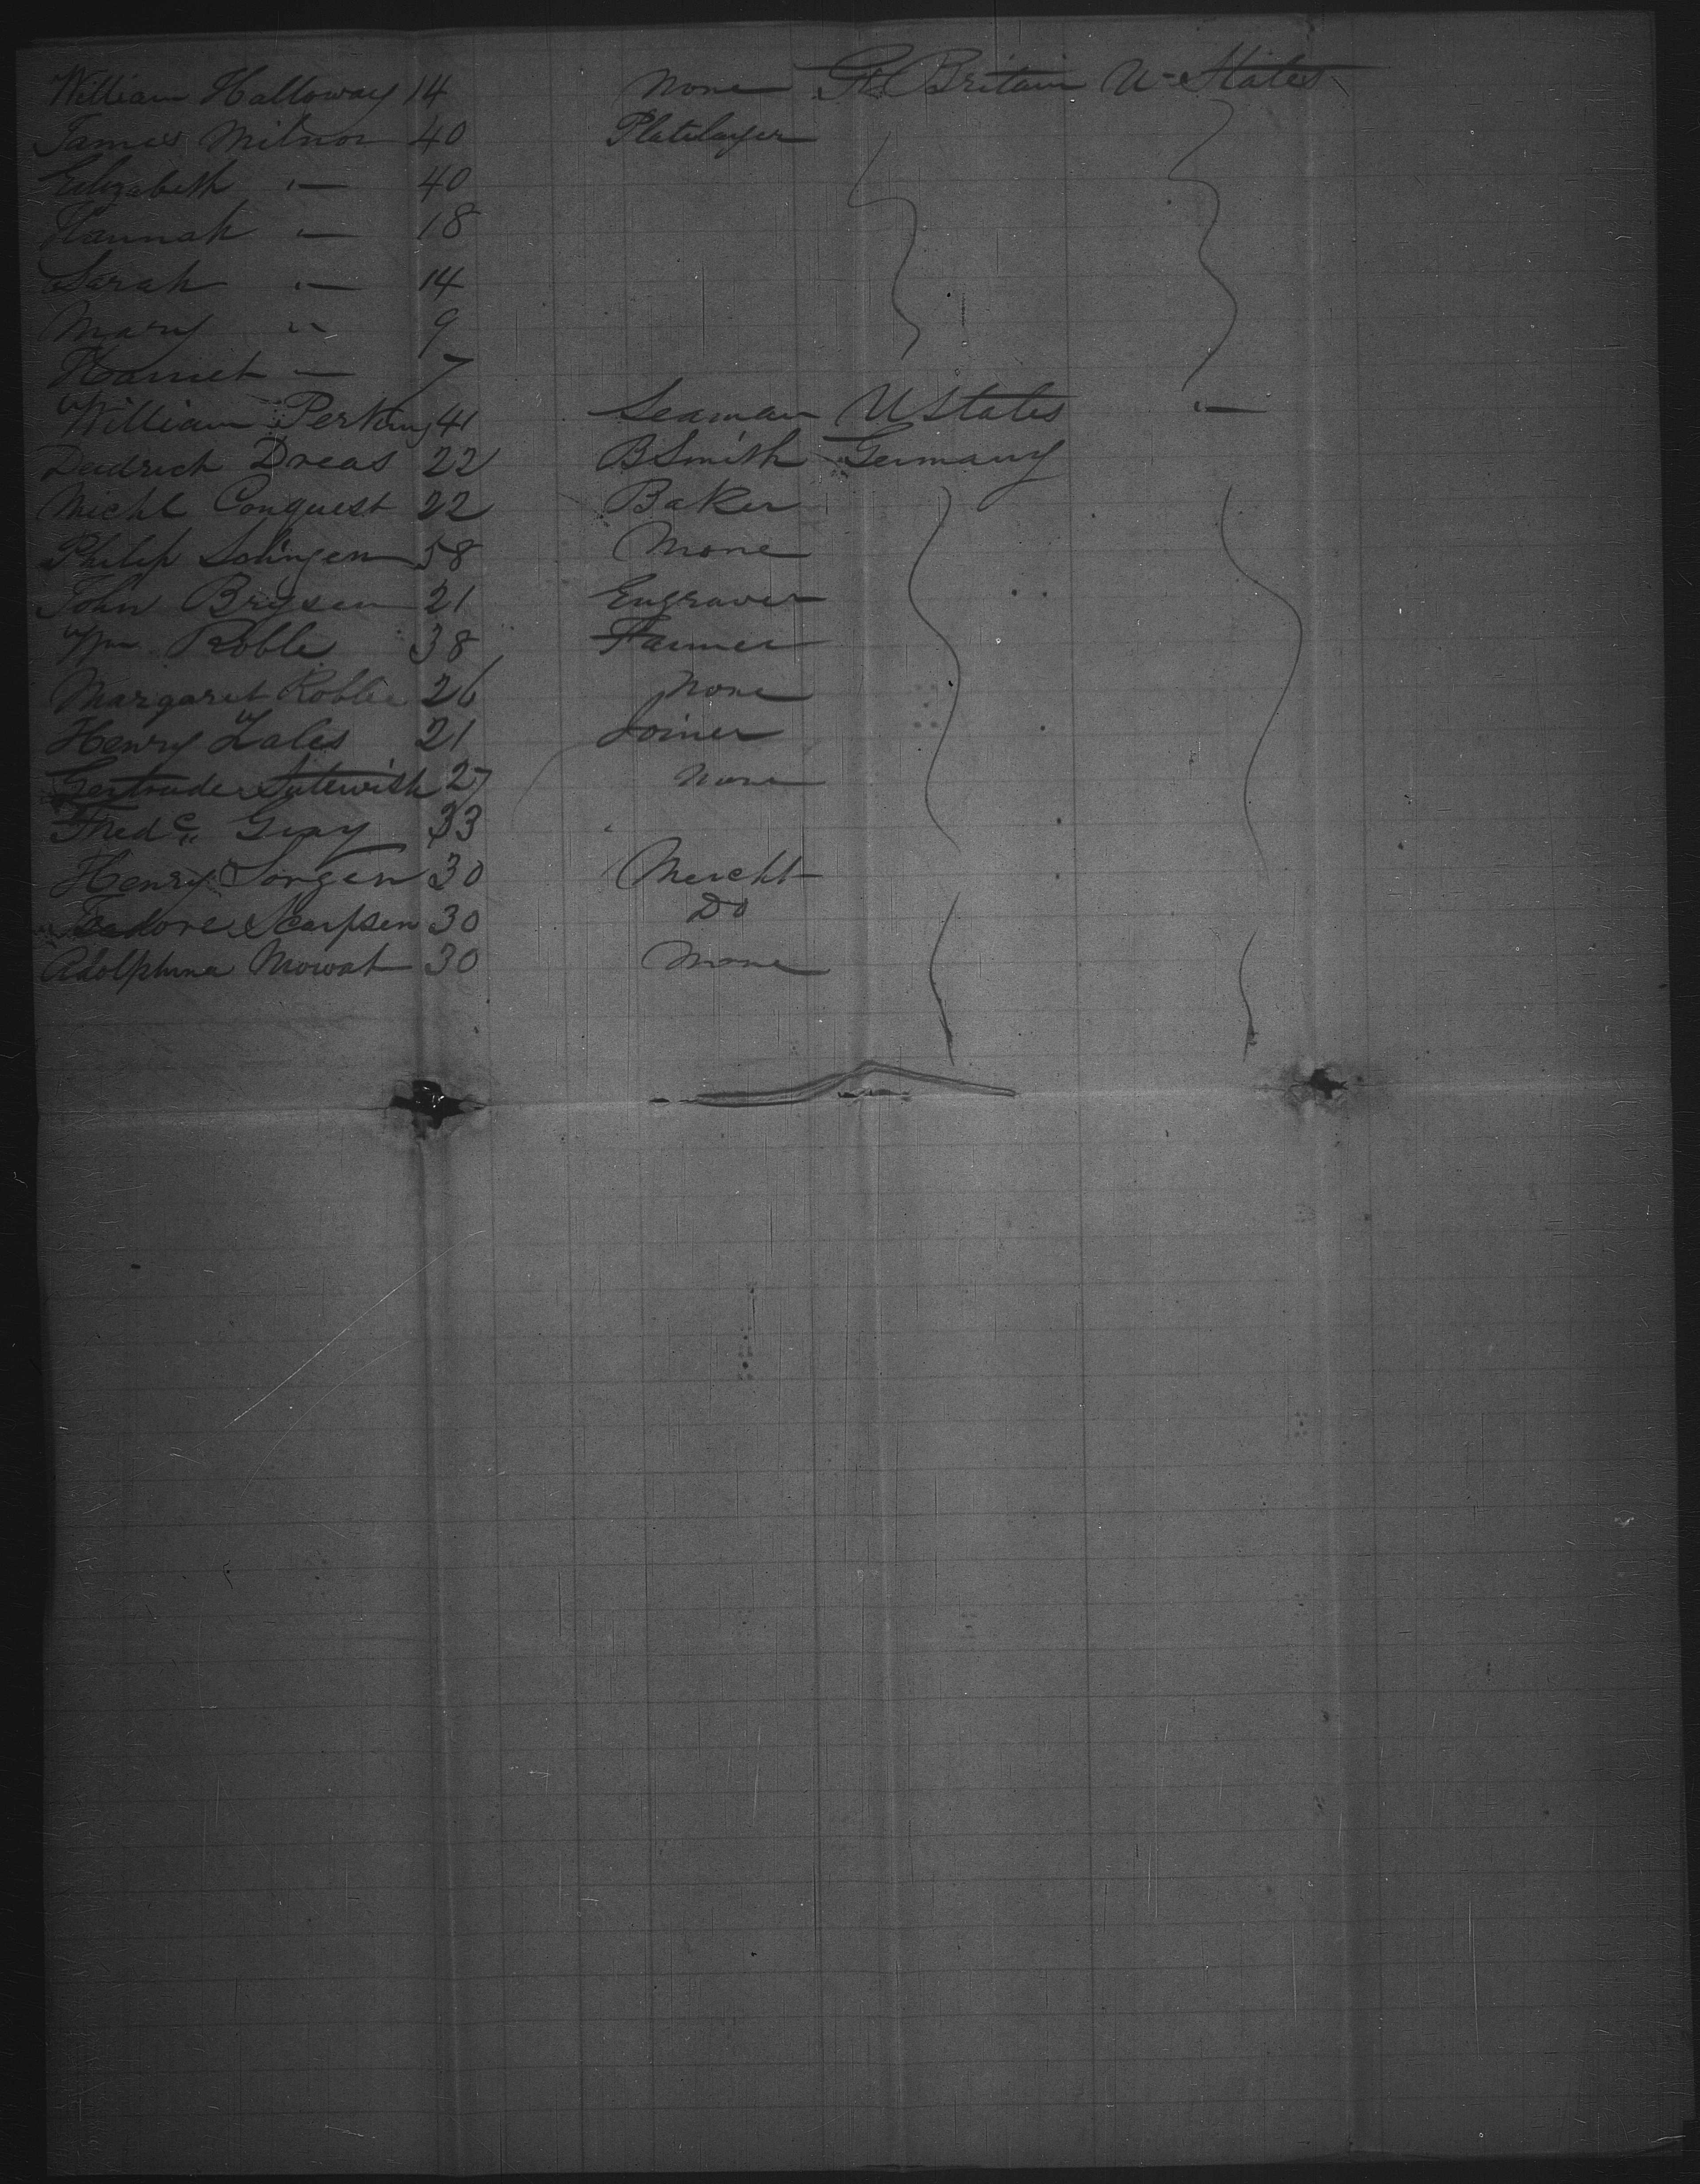 William Halloway 14 None Gt Britain U-States
James Milnor 40 Platelayer
Elizabeth " — 40
Hannah " — 18
Sarah " — 14
Mary " 9
Harriet — 7
William Perkins 41 Seaman U States " —
Deidrich Dreas 22 BSmith Germany
Michl Conquest 22 Baker
Philip Solingen 58 None
John Brysen 21 Engraver
Wm Roble 38 Farmer
Margaret Roble 26 None
Henry Zales 21 Joiner
Gertrude 27 None
Fredc Gray 33
Henry Jorgen 30 Mercht
30 Do
Adolphina Mowat 30 None